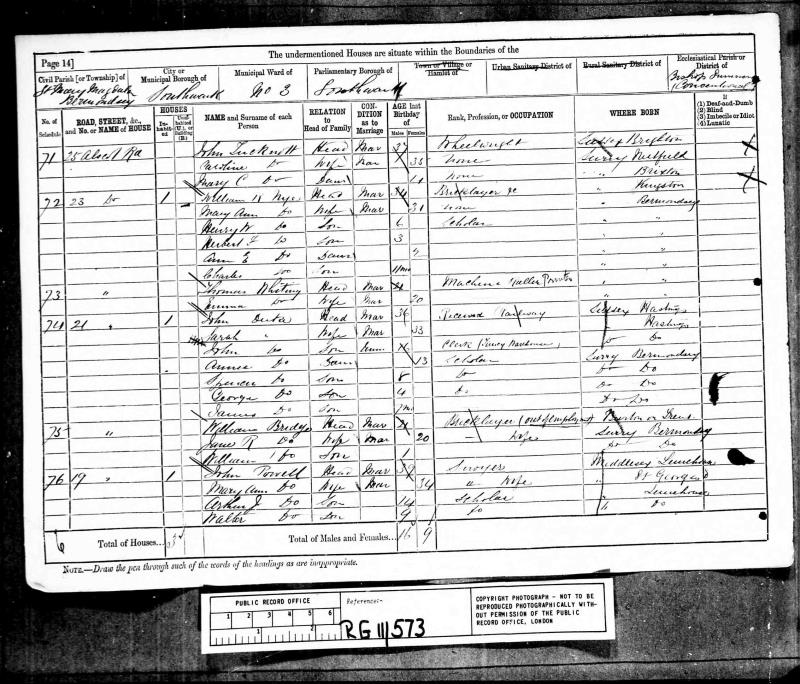 The undermentioned Houses are situate within the Boundaries of the
Page 14]
Civil Parish [or Township] of
St Mary Magdalen Bermondsey
City or Municipal Borough of
Southwark
Municipal Ward of
No 3
Parliamentary Borough of
Southwark
Town or Village or Hamlet of
Urban Sanitary District of
Rural Sanitary District of
Ecclesiastical Parish or District of
No. of Schedule
ROAD, STREET, &c., and No. or NAME of HOUSE
HOUSES
Inhabited
Uninhabited (U.), or Building (B.)
NAME and Surname of each Person
RELATION to Head of Family
CONDITION as to Marriage
AGE last Birthday of
Males
Females
Rank, Profession, or OCCUPATION
WHERE BORN
If
(1) Deaf-and-Dumb
(2) Blind
(3) Imbecile or Idiot
(4) Lunatic
71 25 John Head Mar 37 Wheelwright Sussex Brighton
Caroline Do Wife Mar 35 None Surry
Mary C Do Daur 4 None " Brixton
72 23 Do 1 William Nye Head Mar Bricklayer " Kingston
Mary Ann Do Wife Mar 31 None " Bermondsey
Henry W Do Son 6 Scholar " "
Herbert Do Son 3 " "
Ann E Do Daur " "
Charles Do Son 11mo " "
73 " Thomas Whiting Head Mar Machine " "
Emma Do Wife Mar 20 " "
74 21 " 1 John Head Mar 36 Railway Sussex Hastings
Sarah " Wife Mar 33 Hastings
John Do Son 16 Clerk Do
Annie Do Daur 13 Scholar Surry Bermondsey
Spencer Do Son 8 Do Do Do
George Do Son 4 Do Do Do
James Do Son 7mo Do Do
75 " William Bridge Head Mar 21 Bricklayer (out of employment) Burton on Trent
Jane R Do Wife Mar 20 Wife Surry Bermondsey
William Do Son 1 Do Do
76 19 " 1 John Powell Head Mar 39 Sawyer Middlesex Limehouse
Mary Ann Do Wife Mar 34 " Wife " St Georges
Arthur J Do Son 14 Scholar " Limehouse
Walter Do Son 9 Do " Do
6 Total of Houses... 3
Total of Males and Females... 16 9
NOTE.—Draw the pen through such of the words of the headings as are inappropriate.
PUBLIC RECORD OFFICE
1 2 3 4 5 6
1 2
Reference:-
RG 11/573
COPYRIGHT PHOTOGRAPH - NOT TO BE REPRODUCED PHOTOGRAPHICALLY WITHOUT PERMISSION OF THE PUBLIC RECORD OFFICE, LONDON